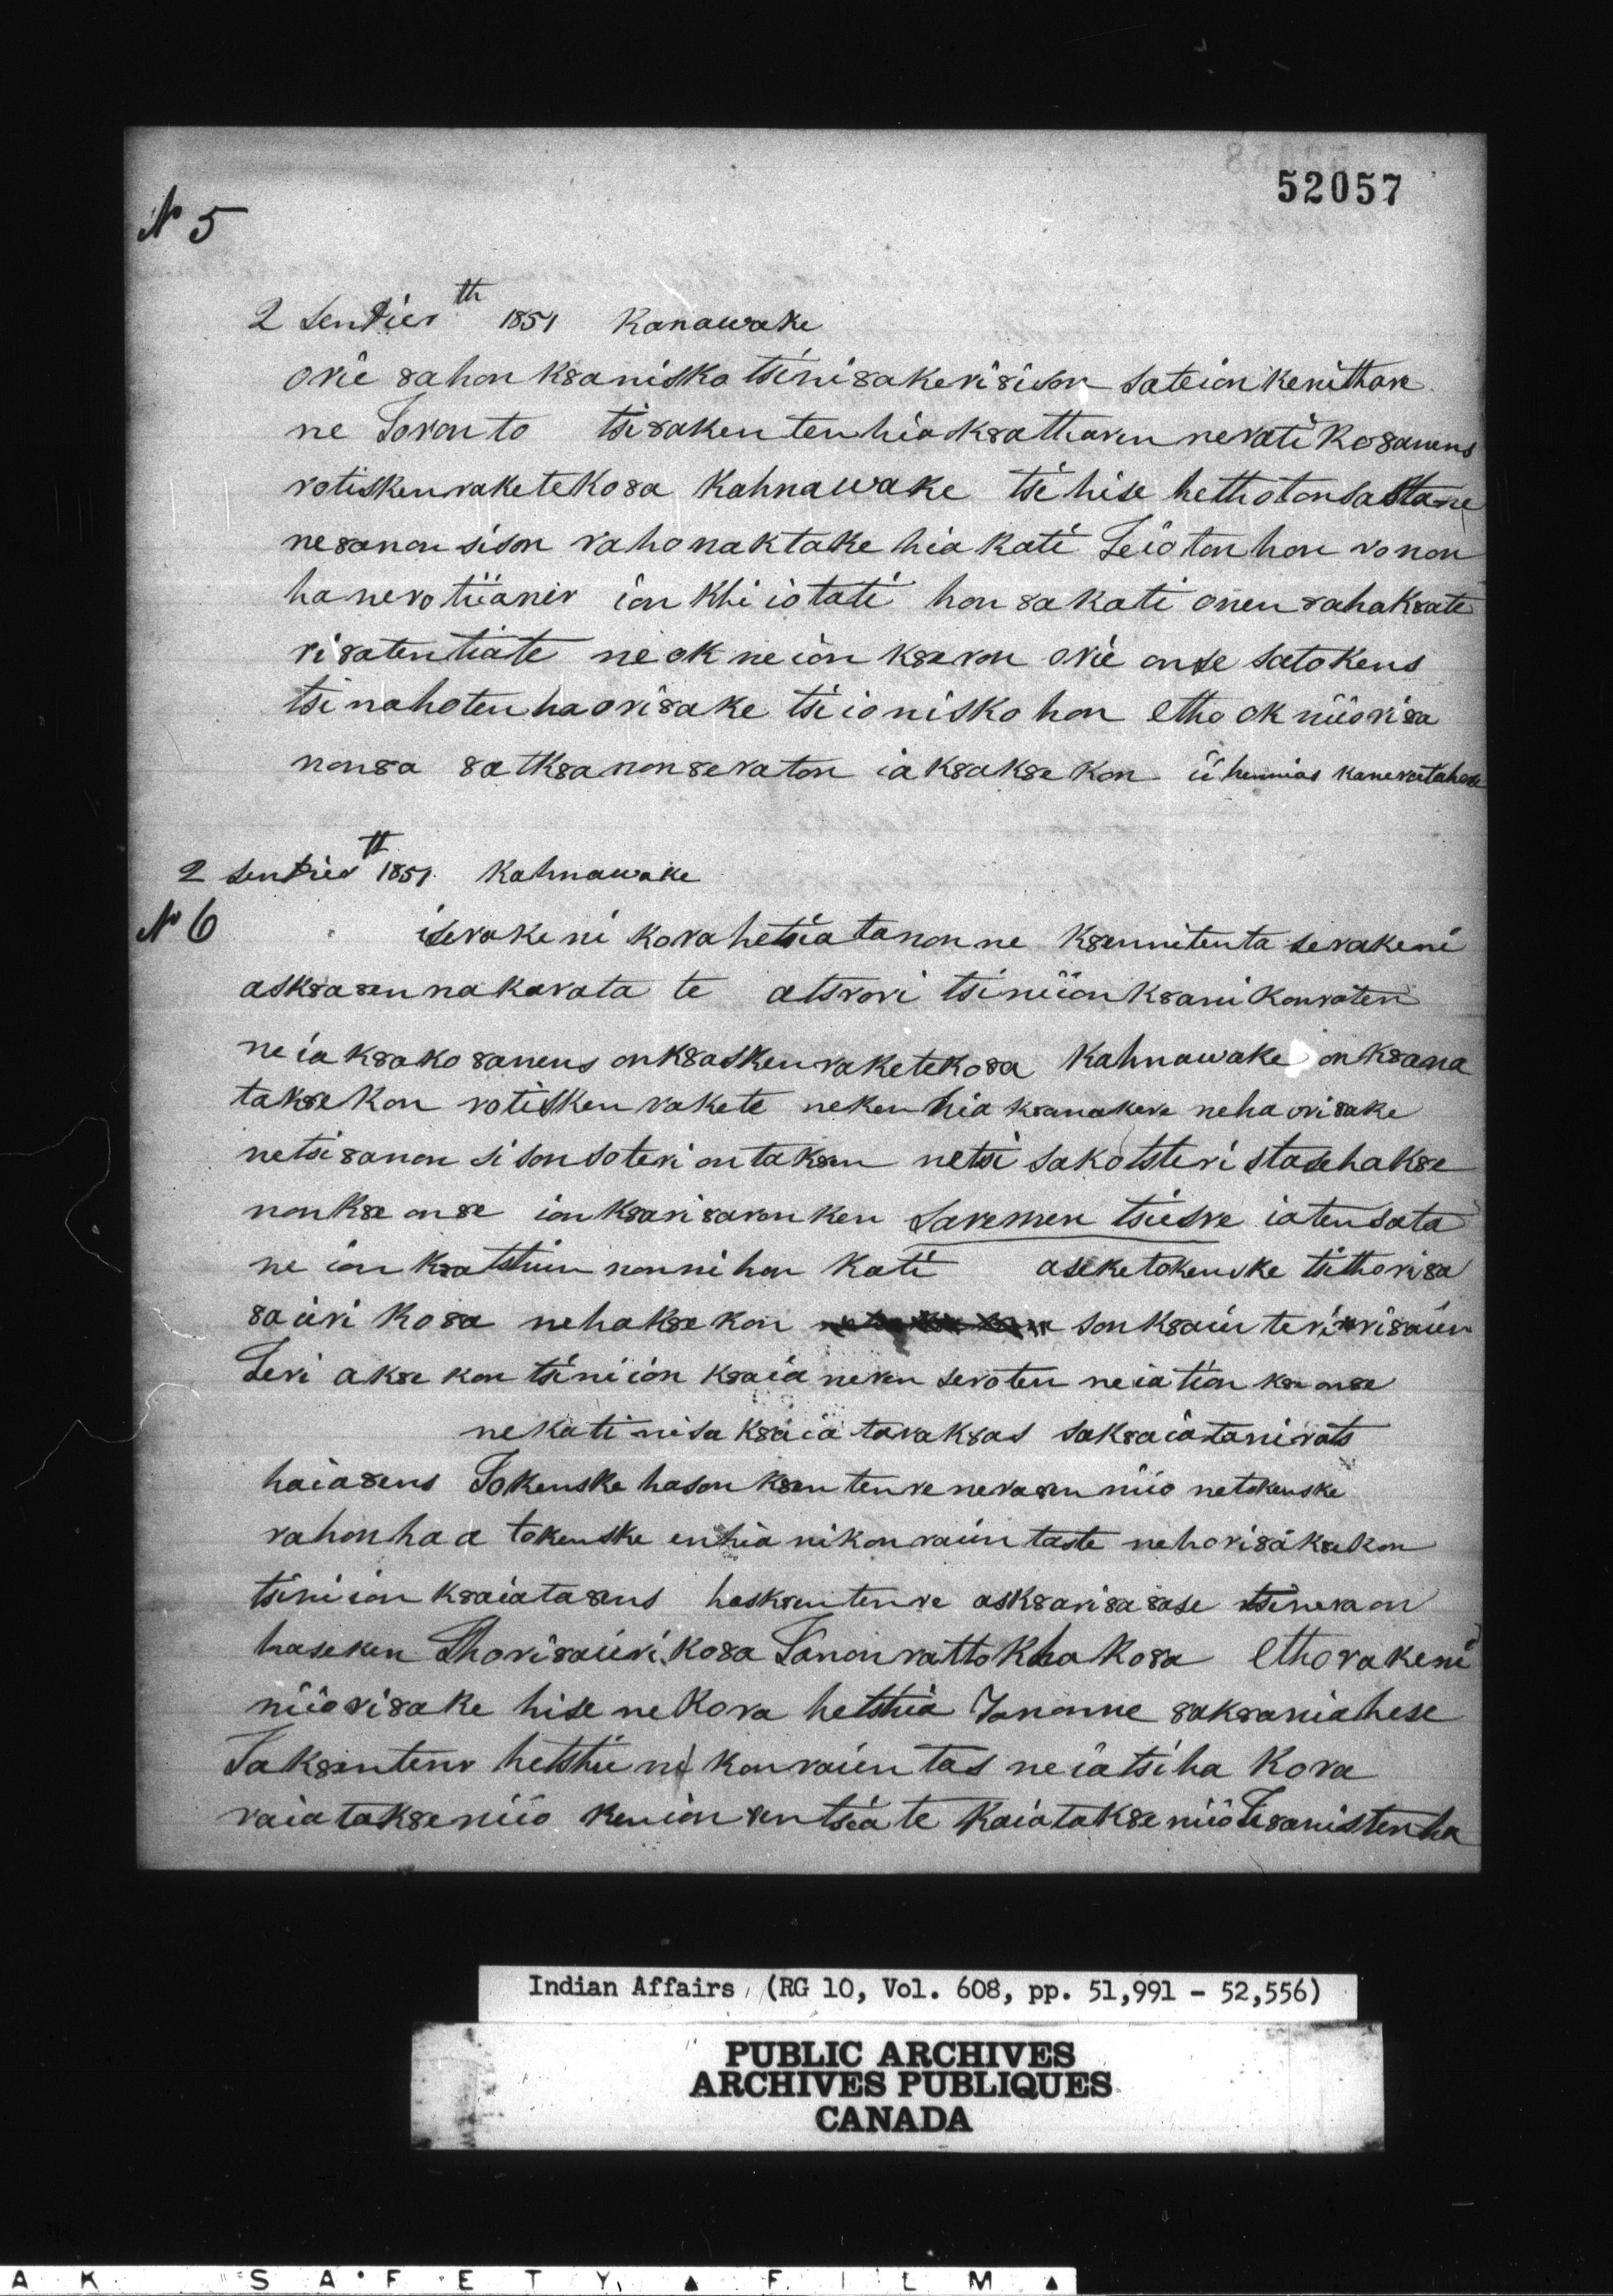 52057
N 5
2 Sentier th 1851 Kanawake
orie 8ahonk8anisko tsini8akeri8ison sateionkenithare
ne Toronto tsi8akentenhiaok8attaren nerati Ko8anens
rotiskenraketeko8a Kahnawake tsi hise hethotonsastane
ne8anonsison rahonaktake hiakati Teiotonhon ronon
hanerotiianer ionkhiiotati hon8akati onen 8ahak8ate
ri8atentiate ne ok ne ionk8aron orie on8e satokens
tsinahoten haori8ake tsi ioniskohon etho ok niiori8a
non8a 8atk8anon8eraton iak8ak8ekon
2 Sentier tt 1851 Kahnawake
N 6
iserakeni korahetsia tanon ne k8ennitenta serakeni
ask8a8ennakarata te atsrori tsiniionk8anikonroten
ne iak8ako8anens onk8askenraketeko8a Kahnawake onk8ana
tak8ekon rotiskenrakete neken hia k8anakere ne haori8ake
netsi8anonsison soteriontak8en netsi sakotsteristasehak8e
nonk8e on8e ionk8ari8aronken Saremen tsiesre iatensata
ne ionk8atstiien nonnihon Kati aseketokenske tsithori8a
8aiiriko8a nehak8ekon sonk8aien teri ri8aien
Teriak8ekon tsiniionk8aianeren seroten ne iationk8e on8e
nekati nisa k8aiatarak8as sak8aiatanirats
haia8ens Tokenske hasonk8entenre nera8enniio netokenske
rahonhaa tokenske enhianikonraientaste nehori8ak8ekon
tsiniionk8aiata8ens hask8entenre ask8ari8a8ase tsineraon
haseken Thori8aiiriko8a Tanon rattokhako8a etho rakeni
niiori8ake hise ne Kora hetshia Tanonne sak8aniahese
Tak8entenr hetshie nikonraientas ne iatsiha Kora
raiatak8eniio kenionhentsiate Kaiatak8eniio Tesanistenha
Indian Affairs, (RG 10, Vol. 608, pp. 51,991 - 52,556)
PUBLIC ARCHIVES
ARCHIVES PUBLIQUES
CANADA
AK SAFETY FILM